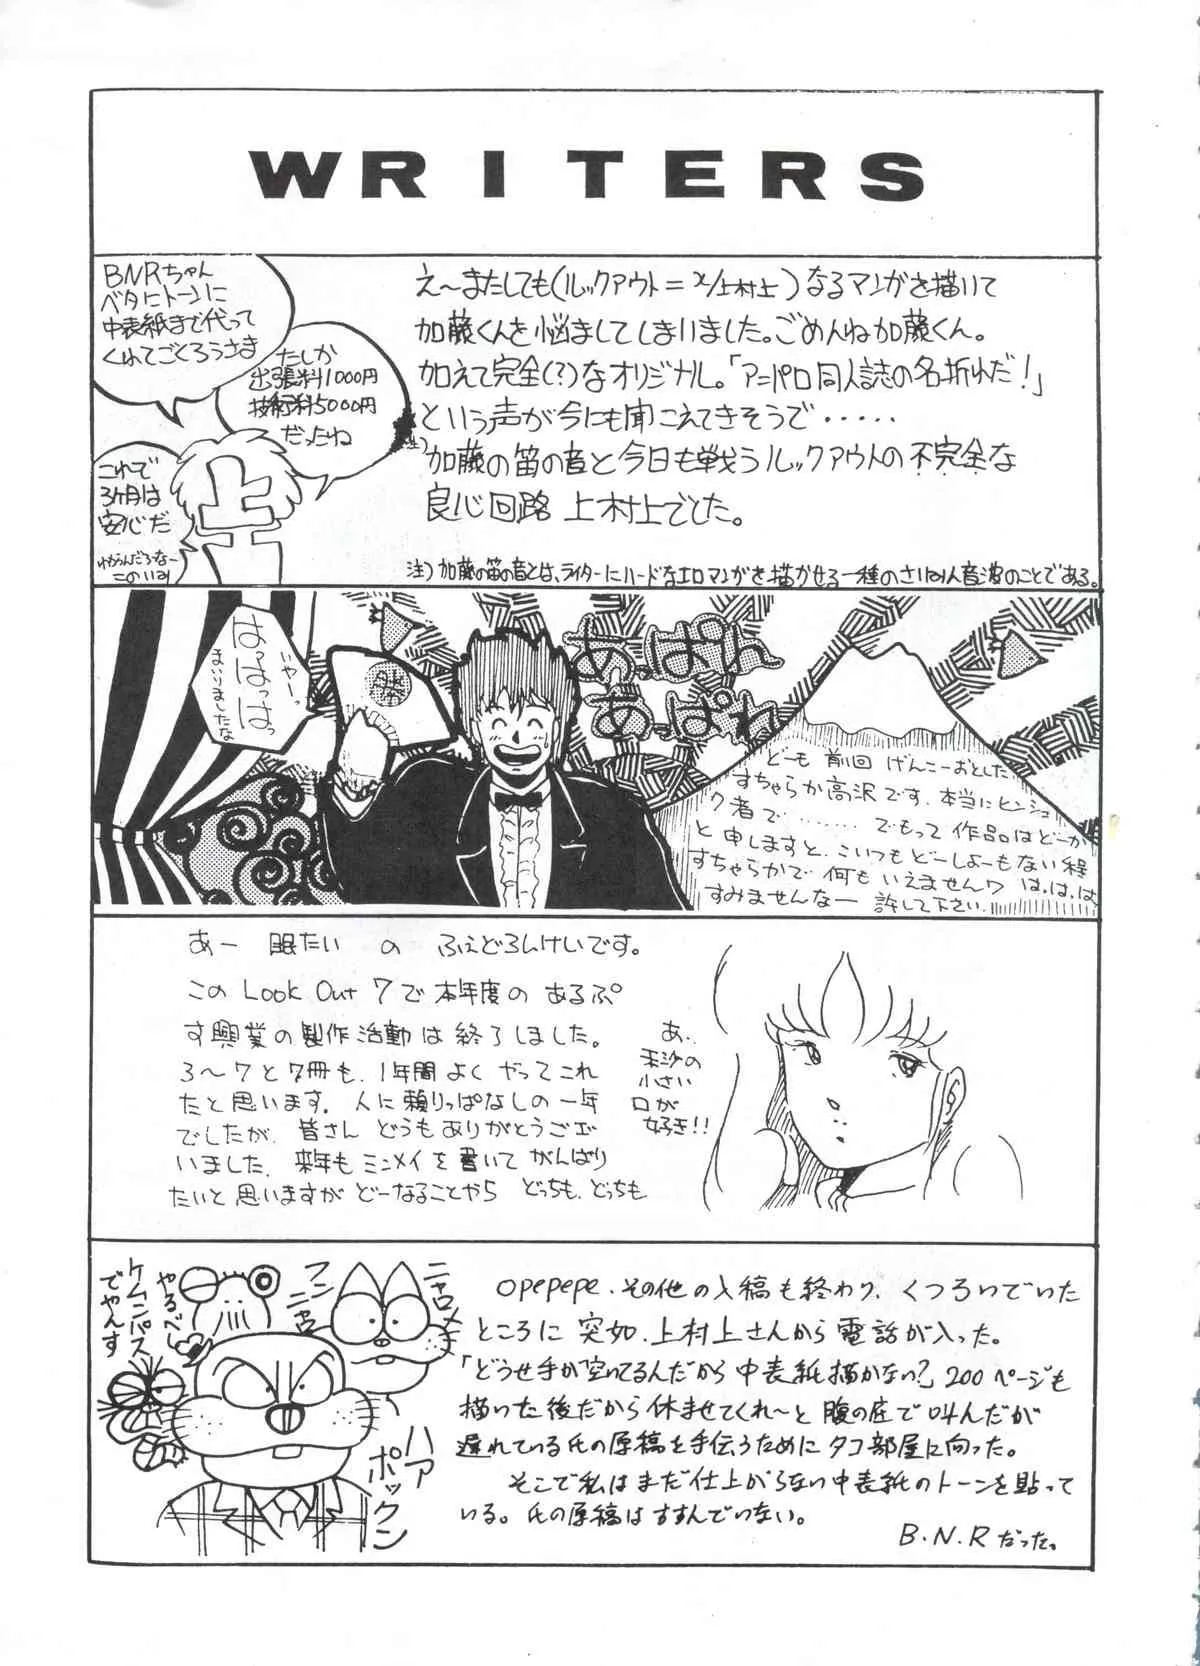 WRITERS
BNRちゃん
ベタにトーンに
中表紙まで代って
くれてごくろうさま
たしか
出張料1000円
技術料5000円
だったね
これで
3ヶ月は
安心だ
わかんだろーなー
このいみ
上
え〜またしても(ルックアウト=×/上村上)なるマンガを描いて
加藤くんを悩ましてしまいました。ごめんね加藤くん。
加えて完全(?)なオリジナル。「アニパロ同人誌の名折れだ!」
という声が今にも聞こえてきそうで・・・・・
注)
加藤の笛の音と今日も戦うルックアウトの不完全な
良心回路 上村上でした。
注)加藤の笛の音とは、ライターにハードなエロマンガを描かせる一種のさいみん音波のことである。
いやーっ
はっはっはっ
まいりましたな
祭
あっぱれ
あっぱれ
どーも 前回 げんこーおとした
すちゃらか高沢です、本当にヒンシュ
ク者で・・・・・・・・ でもって 作品はどーか
と 申しますと、こいつもどーしよーもない程
すちゃらかで 何も いえませんワ は、は、は
すみませんなー 許して下さい
あー 眠たい の ふぇどろんけいです。
この Look Out 7 で 本年度の あるぷ
す興業の製作活動は終了しました。
3〜7と7冊も、1年間 よく やってこれ
たと思います。人に頼りっぱなしの一年
でしたが、皆さん どうもありがとうござ
いました。来年も ミンメイ を書いて がんばり
たいと思いますが どーなることやら どっちも、どっちも
あ、
未沙の
小さい
口が
好き!!
ケムンパス
でやんす
やるべし
フン
ニャロ
ニャロメ
ハァ
ポックン
opepepe、その他の入稿も終わり、くつろいでいた
ところに 突如、上村上さんから 電話が入った。
「どうせ手が空いてるんだから 中表紙描かない?」200ページも
描いた後だから休ませてくれ〜と 腹の底で叫んだが
遅れている氏の原稿を手伝うために タコ部屋に向った。
そこで私はまだ仕上がらない中表紙のトーンを貼って
いる。氏の原稿はすすんでいない。
B.N.R だった。